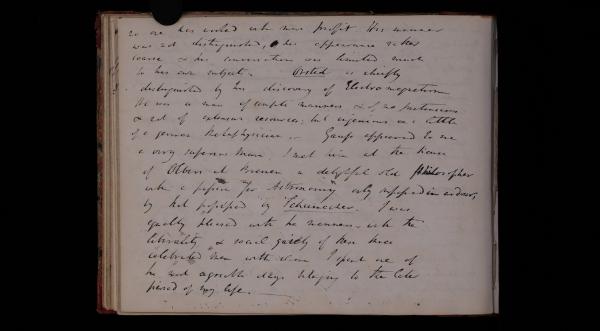 no one has worked with more profit. His manner
was not distinguished, & his appearance rather
coarse & his conversation was limited much
to his own subjects. Örsted is chiefly
distinguished by his discovery of Electro magnetism
He was a man of simple manners & of no pretensions
& not of extensive resources; but ingenious and a little
of a german Metaphysician. – Gauss appeared to me
a very superior Man; I met him at the house
of Olbers at Bremen a delightful old Philosopher
with a passion for Astronomy only in ardour,
by that possessed by Schumacher. I was
equally pleased with the manners, with the
liberality & social gaiety of these three
celebrated men with whom I spent one of
the most agreeable days belonging to the later
period of my life. –